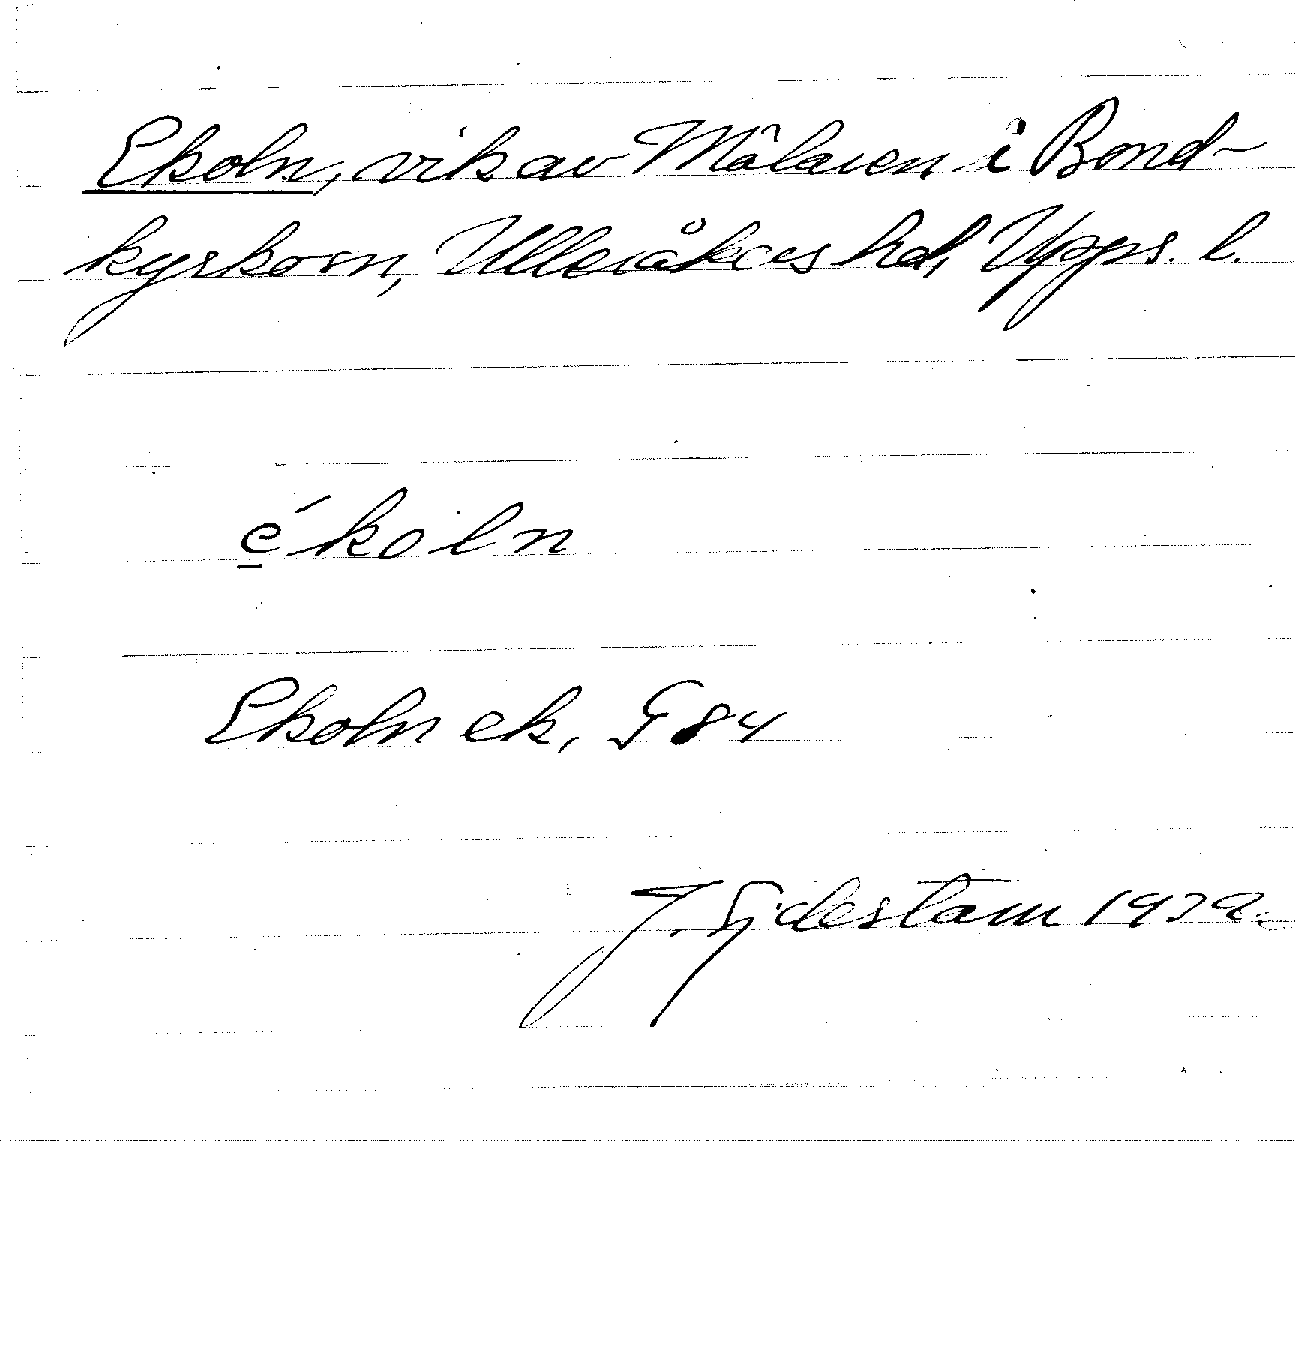 Ekoln, vik av Mälaren i Bond-
kyrkosn, Ulleråkers hd, Upps. l.
é̠koln
Ekoln ek, G 84
J. Sjdestam